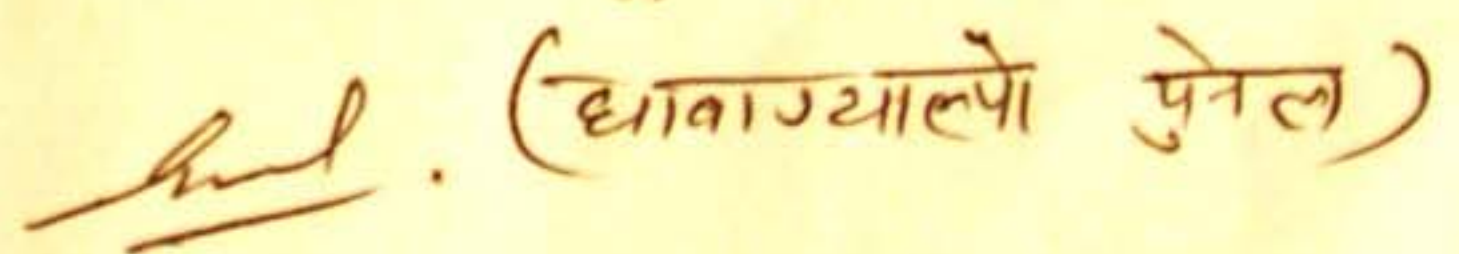 (धावाग्याल्पो पुनेल)